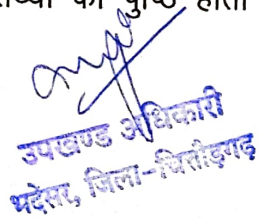 की पुष्टि होती
उपखण्ड अधिकारी
भदेसर, जिला-चित्तौड़गढ़